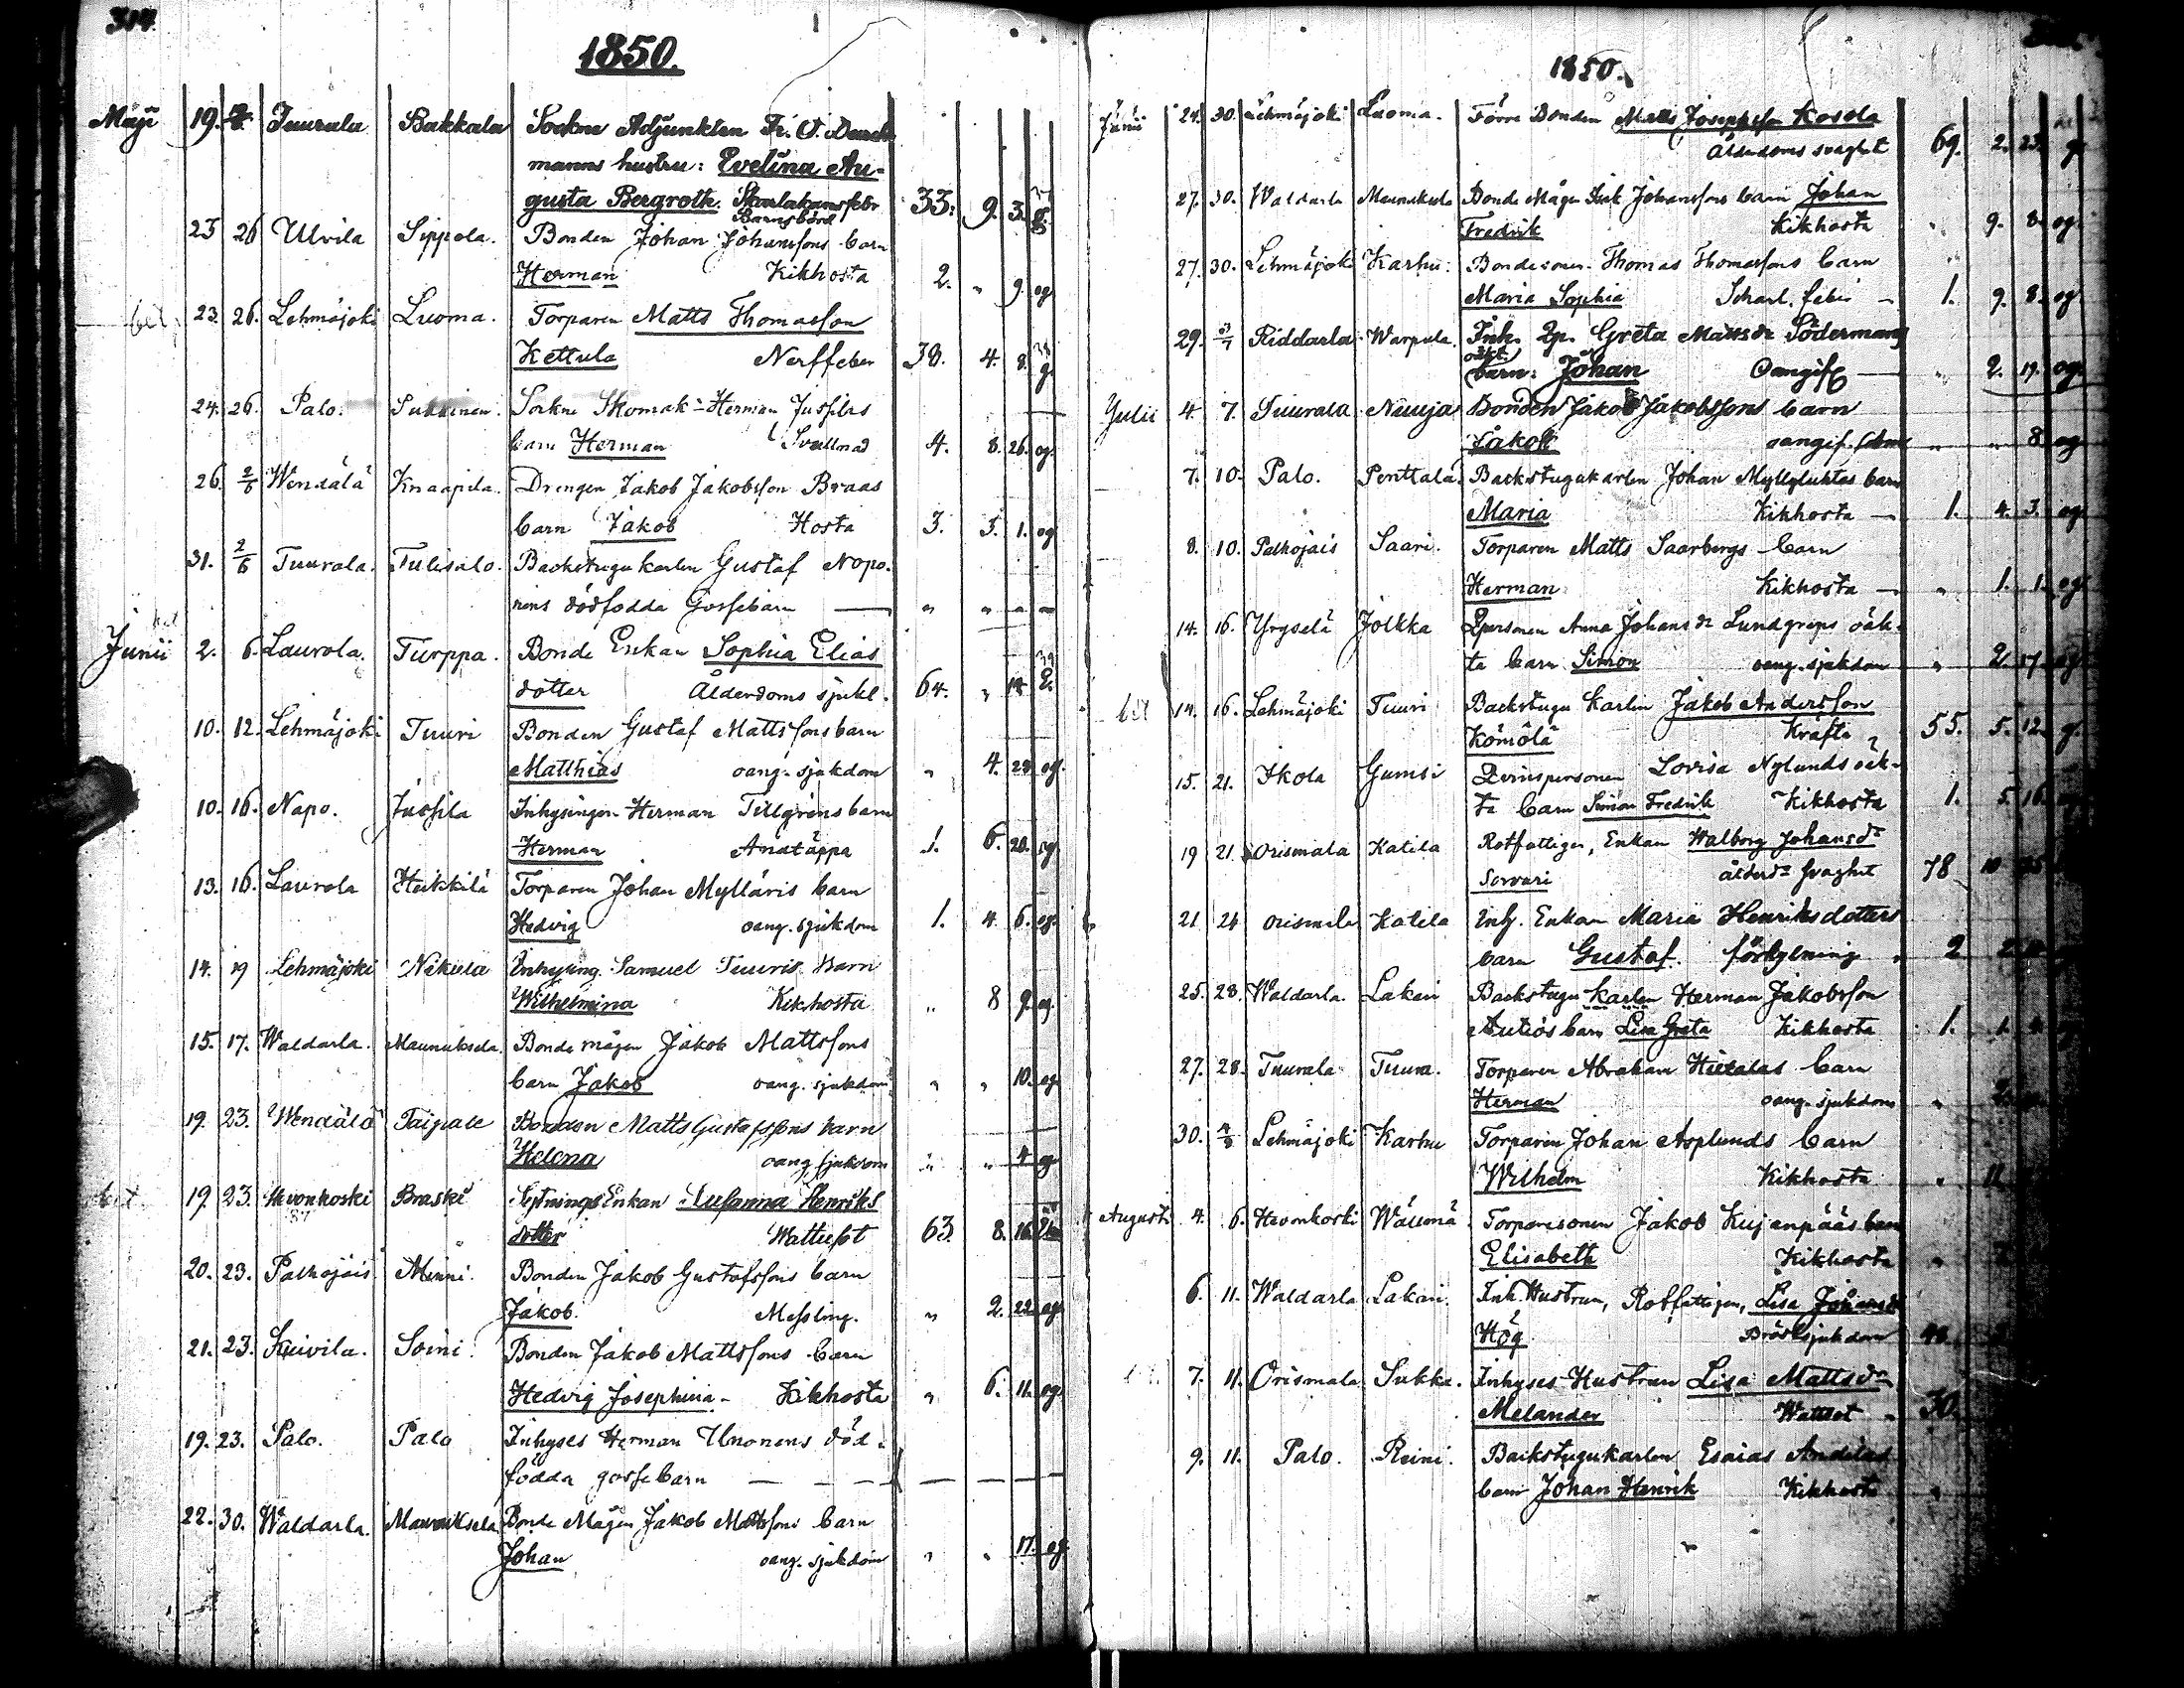 314.
1850.
Maji 19. Tuurala Bakkala Sockne Adjunkten Fr. O.
manns hustru: Evelina Au-
gusta Bergroth. Skarlakansfeber 33. 9. 3.
Barnsbörd
23 26 Ulvila Sippola. Bonden Johan Johanssons barn
Herman Kikhosta 2. " 9. og
23. 26. Lehmäjoki Luoma. Torparen Matts Thomasson
Kettula Nerffeber 38. 4. 8. g.
24. 26. Palo. Sukkinen. Sockne Skomak. Herman Jussilas
barn Herman Svullnad 4. 8. 26. og.
26. 2/6 Wendälä Knaapila. Drengen Jakob Jakobsson Braas
barn Jakob Hosta 3. 3. 1. og
31. 2/6 Tuurala. Tulisalo. Backstugukarlen Gustaf Nopo-
nens dödfödda Gossebarn — " " " "
Junii 2. 6. Laurola. Turppa. Bonde Enkan Sophia Elias
dotter Ålderdoms sjukl. 64. " 14. E.
10. 12. Lehmäjoki Tuuri Bonden Gustaf Mattssons barn
Matthias oang. sjukdom " 4. 24. og.
10. 16. Napo. Jussila Inhysingen Herman Tillgrens barn
Herman Andtäppa 1. 6. 20. og.
13. 16. Laurola Heikkilä Torparen Johan Mylläris barn
Hedvig oang. sjukdom 1. 4. 6. og.
14. 19 Lehmäjoki Nikula Inhysing. Samuel Tuuris Barn
Wilhelmina Kikhosta " 8 9. og.
15. 17. Waldarla. Maunuksela. Bonde mågen Jakob Mattssons
barn Jakob oang. sjukdom " " 10. og.
19. 23. Wendälä Taipale Bonden Matts Gustafssons barn
Helena oang sjukdom " " 4 og
19. 23. Hevonkoski Braski Sytnings Enkan Susanna Henriks
dotter Wattusot 63. 8. 16. Enk
20. 23. Palhojais Minni. Bonden Jakob Gustafssons barn
Jakob. Messling. " 2. 22. og.
21. 23. Kuivila. Soini. Bonden Jakob Mattssons barn
Hedvig Josephina - Kikhosta " 6. 11. og.
19. 23. Palo. Palo Inhyses Herman Unonens död-
födda gossebarn — — — — — —
22. 30. Waldarla. Maunuksela Bonde Mågen Jakob Mattssons barn
Johan oang. sjukdom " " 17. og
1850.
Junii 24. 30. Lehmäjoki Luoma. Förre Bonden Matts Josephsson Koskla
Ålderdoms svaghet 69. 2. 23. g.
27. 30. Waldarla Maunuksela Bonde Mågen Erik Johanssons barn Johan
Fredrik Kikhosta " 9. 8. og.
27. 30. Lehmäjoki Karhu: Bondesonen Thomas Thomassons barn
Maria Sophia Scharl. feber — 1. 9. 8. og
29. Riddarla Warpula. Inh. Qp. Greta Mattsdr Södermans
oäkt.
barn: Johan Oangif. — " 2. 19. og.
Julii 4. 7. Tuurala Nuuja Bonden Jakob Jakobssons barn
Jakob oangif. " " 8. og
7. 10. Palo. Penttala. Backstugukarlen Johan Myllyluhtas barn
Maria Kikhosta — 1. 4. 3. og
8. 10. Palhojais Saari. Torparen Matts Saarbergs barn
Herman Kikhosta — " 1. 1. og.
14. 16. Yryselä Jolkka Qpersonen Anna Johansdr Lundgrens oäk-
ta barn Simon oang. sjukdom " 2. 17. og.
14. 16. Lehmäjoki Tuuri Backstugu Karlen Jakob Andersson
Kömölä Kräfta 55. 5. 12. g.
15. 21. Ikola Gumsi Qvinspersonen Lovisa Nylunds oäk-
ta barn Simon Fredrik Kikhosta 1. 5. 16.
19 21. Orismala Katila Rotfattigen, Enkan Walborg Johansdr
Sorvari ålderds svaghet 78 10
21 24 Orismala Katila Inh. Enkan Maria Henriksdotters
barn Gustaf. förkylning 2
25. 28. Waldarla. Lakari Backstugu karlen Herman Jakobsson
Autiös barn Lisa Greta Kikhosta 1. 1.
27. 28. Tuurala Tuura. Torparen Abraham Hietalas barn
Herman oang. sjukdom "
30. 4/8 Lehmäjoki Karhu Torparen Johan Asplunds barn
Wilhelm Kikhosta " 11
Augusti 4. 6. Hevonkoski Wälimä Torparesonen Jakob Kujanpääs barn
Elisabeth Kikhosta "
6. 11. Waldarla Lakari. Inh. Hustrun, Rotfattigen, Lisa Johansdr
Hög Bröstsjukdom
7. 11. Orismala Sukka. Inhyses Hustrun Lisa Mattsdr
Melander Wattsot 30.
9. 11. Palo. Reini. Backstugukarlen Esaias Andelas
barn Johan Henrik Kikhosta